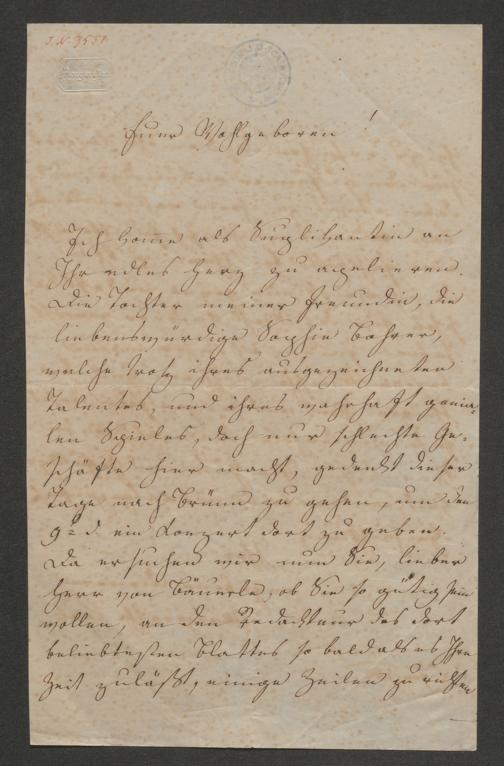 J. N. 3557
Euer Wohlgeboren!
Ich komme als Suplikantin an
Ihr edles Herz zu apelieren.
Die Tochter meiner Freundin, die
liebenswürdige Sophie Bohrer,
welche trotz ihres ausgezeichneten
Talentes, und ihres wahrhaft genia-
len Spieles, doch nur schlechte Ge-
schäfte hier macht, gedenkt dieser
Tage nach Brünn zu gehen, um den
9= d. ein Konzert dort zu geben.
Da ersuchen wir nun Sie, lieber
Herr von Bäuerle, ob Sie so gütig sein
wollen, an den Redakteur des dort
beliebtesten Blattes so bald als es Ihre
Zeit zuläßt, einige Zeilen zu richten